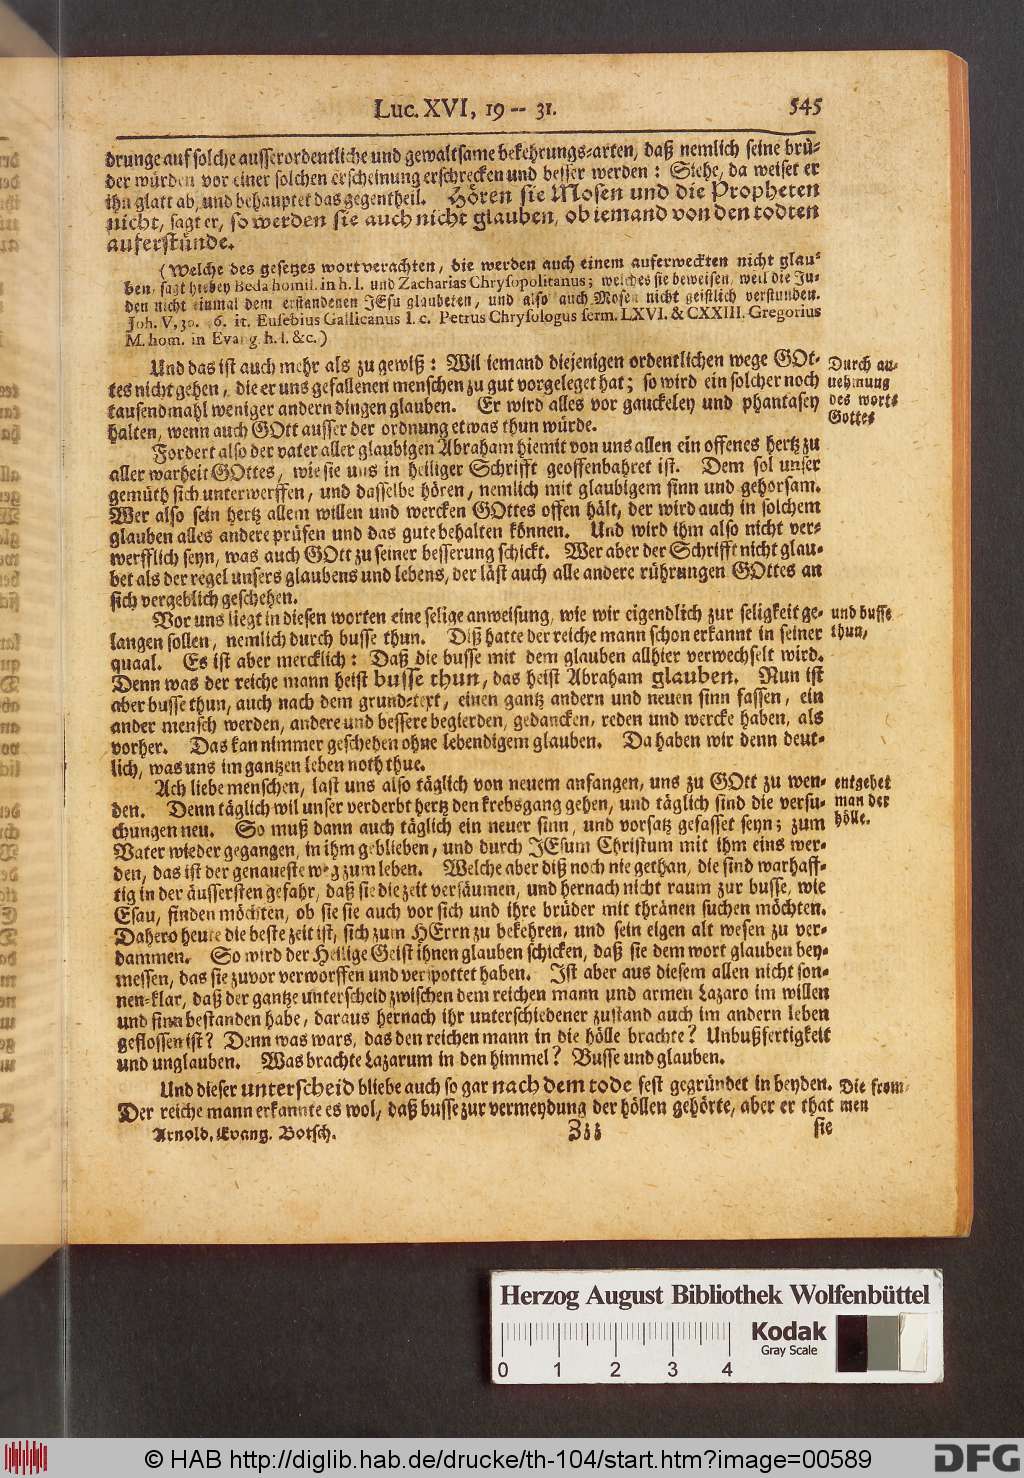 Luc. XVI, 19 -- 31. 545
drunge auf solche ausserordentliche und gewaltsame bekehrungs-arten, daß nemlich seine brü-
der würden vor einer solchen erscheinung erschrecken und besser werden: Siehe, da weiset er
ihn glatt ab, und behauptet das gegentheil. Hören sie Mosen und die Propheten
nicht, sagt er, so werden sie auch nicht glauben, ob iemand von den todten
auferstünde.
(Welche des gesetzes wort verachten, die werden auch einem auferweckten nicht glau-
ben, sagt hiebey Beda homil. in h. l. und Zacharias Chrysopolitanus; welches sie beweisen, weil die Jü-
den nicht einmal dem erstandenen JEsu glaubeten, und also auch Mosen nicht geistlich verstunden.
Joh. V, 39. 46. it. Eusebius Gallicanus l. c. Petrus Chrysologus serm. LXVI. & CXXIII. Gregorius
M. hom. in Evang. h. l. &c.)
Und das ist auch mehr als zu gewiß: Wil iemand diejenigen ordentlichen wege GOt-
tes nicht gehen, die er uns gefallenen menschen zu gut vorgeleget hat; so wird ein solcher noch
tausendmahl weniger andern dingen glauben. Er wird alles vor gauckeley und phantasey
halten, wenn auch GOtt ausser der ordnung etwas thun würde.
Durch an-
nehmung
des worts
Gottes
Fordert also der vater aller glaubigen Abraham hiemit von uns allen ein offenes hertz zu
aller warheit GOttes, wie sie uns in heiliger Schrifft geoffenbahret ist. Dem sol unser
gemüth sich unterwerffen, und dasselbe hören, nemlich mit glaubigem sinn und gehorsam.
Wer also sein hertz allem willen und wercken GOttes offen hält, der wird auch in solchem
glauben alles andere prüfen und das gute behalten können. Und wird ihm also nicht ver-
werfflich seyn, was auch GOtt zu seiner besserung schickt. Wer aber der Schrifft nicht glau-
bet als der regel unsers glaubens und lebens, der läst auch alle andere rührungen GOttes an
sich vergeblich geschehen.
Vor uns liegt in diesen worten eine selige anweisung, wie wir eigendlich zur seligkeit ge-
langen sollen, nemlich durch busse thun. Diß hatte der reiche mann schon erkannt in seiner
quaal. Es ist aber mercklich: Daß die busse mit dem glauben allhier verwechselt wird.
Denn was der reiche mann heist busse thun, das heist Abraham glauben. Nun ist
aber busse thun, auch nach dem grund-text, einen gantz andern und neuen sinn fassen, ein
ander mensch werden, andere und bessere begierden, gedancken, reden und wercke haben, als
vorher. Das kan nimmer geschehen ohne lebendigem glauben. Da haben wir denn deut-
lich, was uns im gantzen leben noth thue.
und busse
thun,
Ach liebe menschen, last uns also täglich von neuem anfangen, uns zu GOtt zu wen-
den. Denn täglich wil unser verderbt hertz den krebsgang gehen, und täglich sind die versu-
chungen neu. So muß dann auch täglich ein neuer sinn, und vorsatz gefasset seyn; zum
Vater wieder gegangen, in ihm geblieben, und durch JEsum Christum mit ihm eins wer-
den, das ist der genaueste weg zum leben. Welche aber diß noch nie gethan, die sind warhaff-
tig in der äussersten gefahr, daß sie die zeit versäumen, und hernach nicht raum zur busse, wie
Esau, finden möchten, ob sie sie auch vor sich und ihre brüder mit thränen suchen möchten.
Dahero heute die beste zeit ist, sich zum HErrn zu bekehren, und sein eigen alt wesen zu ver-
dammen. So wird der Heilige Geist ihnen glauben schicken, daß sie dem wort glauben bey-
messen, das sie zuvor verworffen und verspottet haben. Ist aber aus diesem allen nicht son-
nen-klar, daß der gantze unterscheid zwischen dem reichen mann und armen Lazaro im willen
und sinn bestanden habe, daraus hernach ihr unterschiedener zustand auch im andern leben
geflossen ist? Denn was wars, das den reichen mann in die hölle brachte? Unbußfertigkeit
und unglauben. Was brachte Lazarum in den himmel? Busse und glauben.
entgehet
man der
hölle.
Und dieser unterscheid bliebe auch so gar nach dem tode fest gegründet in beyden.
Der reiche mann erkannte es wol, daß busse zur vermeydung der höllen gehörte, aber er that
Die from-
men
Arnold. Evang. Botsch. Zzz sie
Herzog August Bibliothek Wolfenbüttel
Kodak
Gray Scale
0 1 2 3 4
© HAB http://diglib.hab.de/drucke/th-104/start.htm?image=00589 DFG